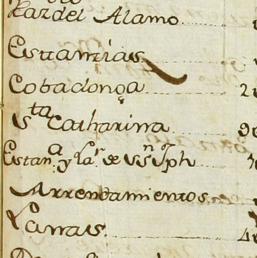 Par del Alamo
Estancias
Cobadonga
Sta Catharina
Estana. y Lar. de Sn. Jph
Arrendamientos
Lanas